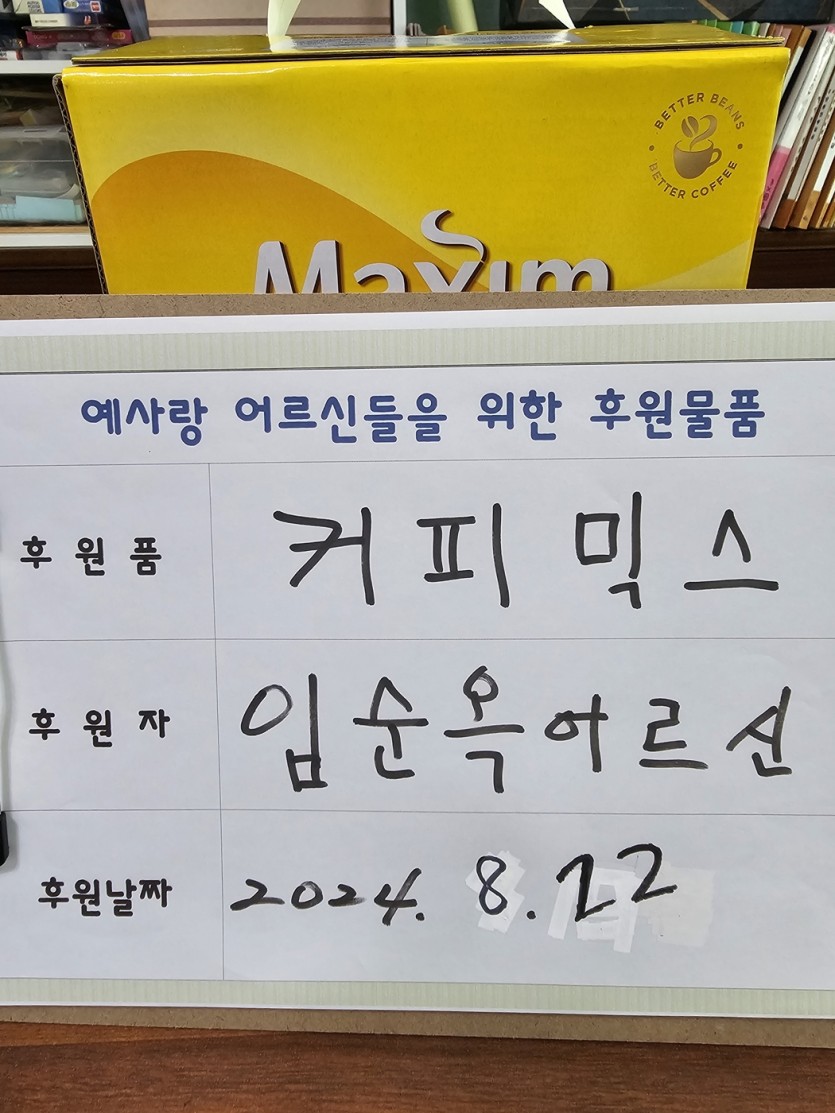 BETTER BEANS
BETTER COFFEE
Maxim
예사랑 어르신들을 위한 후원물품
후원품 커피믹스
후원자 임순옥어르신
후원날짜 2024. 8. 22